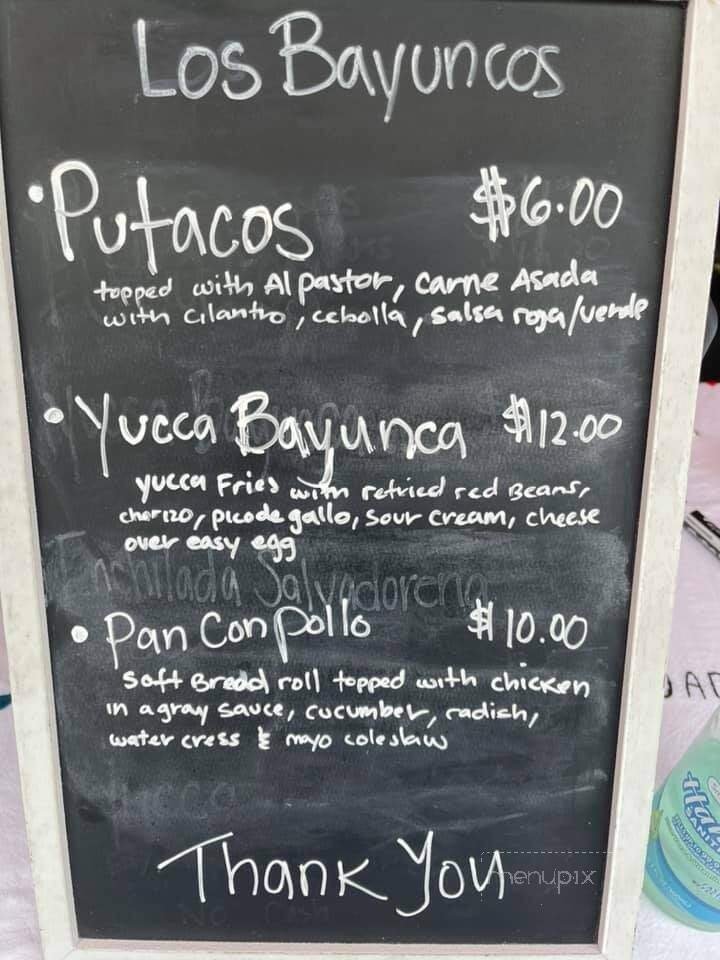 Los Bayuncos
• Putacos $6.00
topped with Al pastor, Carne Asada
with cilantro, cebolla, salsa roja/verde
• Yucca Bayunca $12.00
yucca Fries with refried red Beans,
chorizo, pico de gallo, sour cream, cheese
over easy egg
Enchilada Salvadorena
• Pan Con pollo $10.00
Soft Bread roll topped with chicken
in a gray sauce, cucumber, radish,
water cress & mayo coleslaw
Thank You
menupix